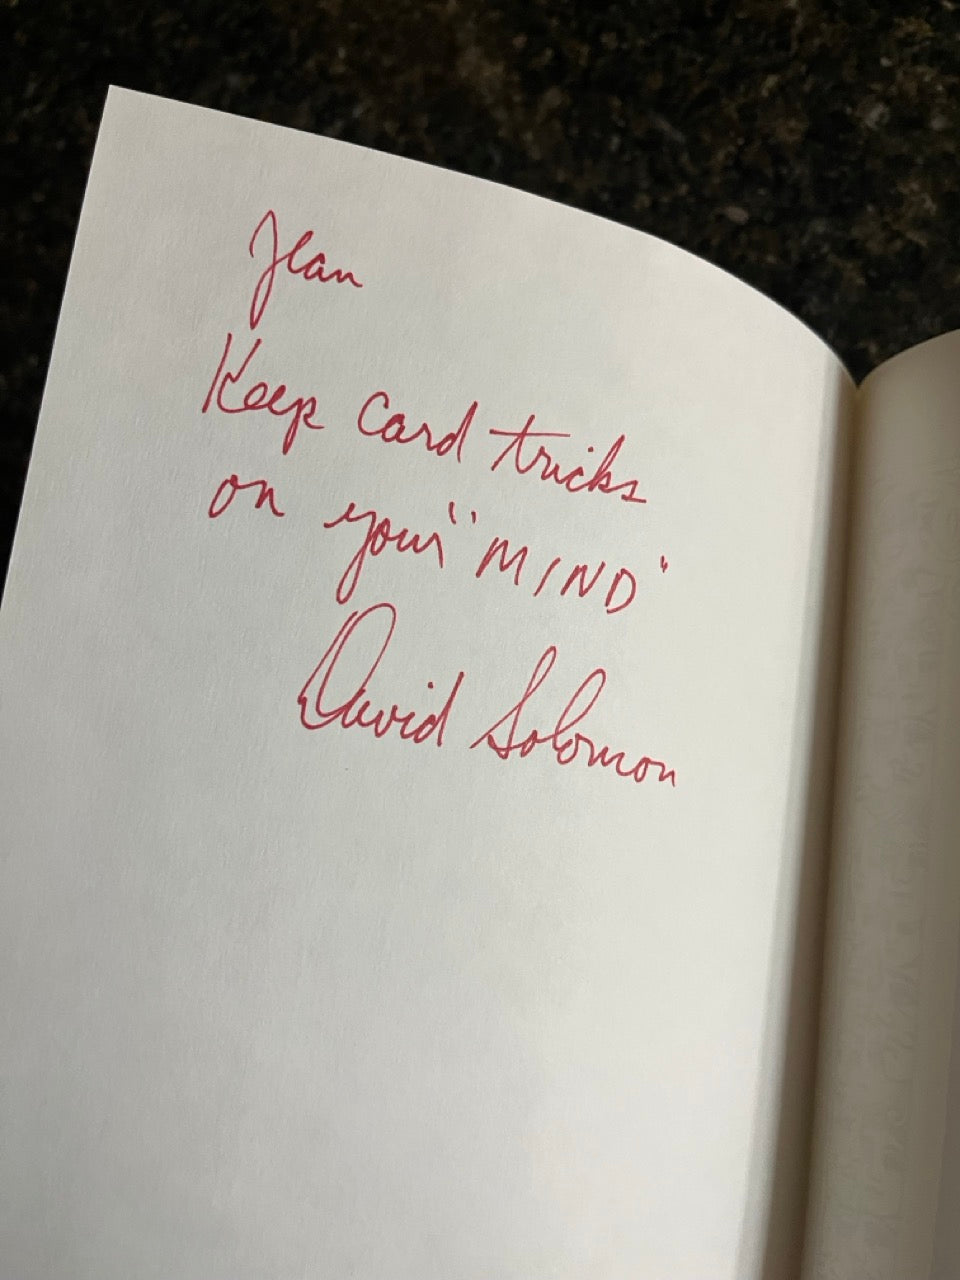 Jean
Keep Card tricks
on your "MIND"
David Solomon